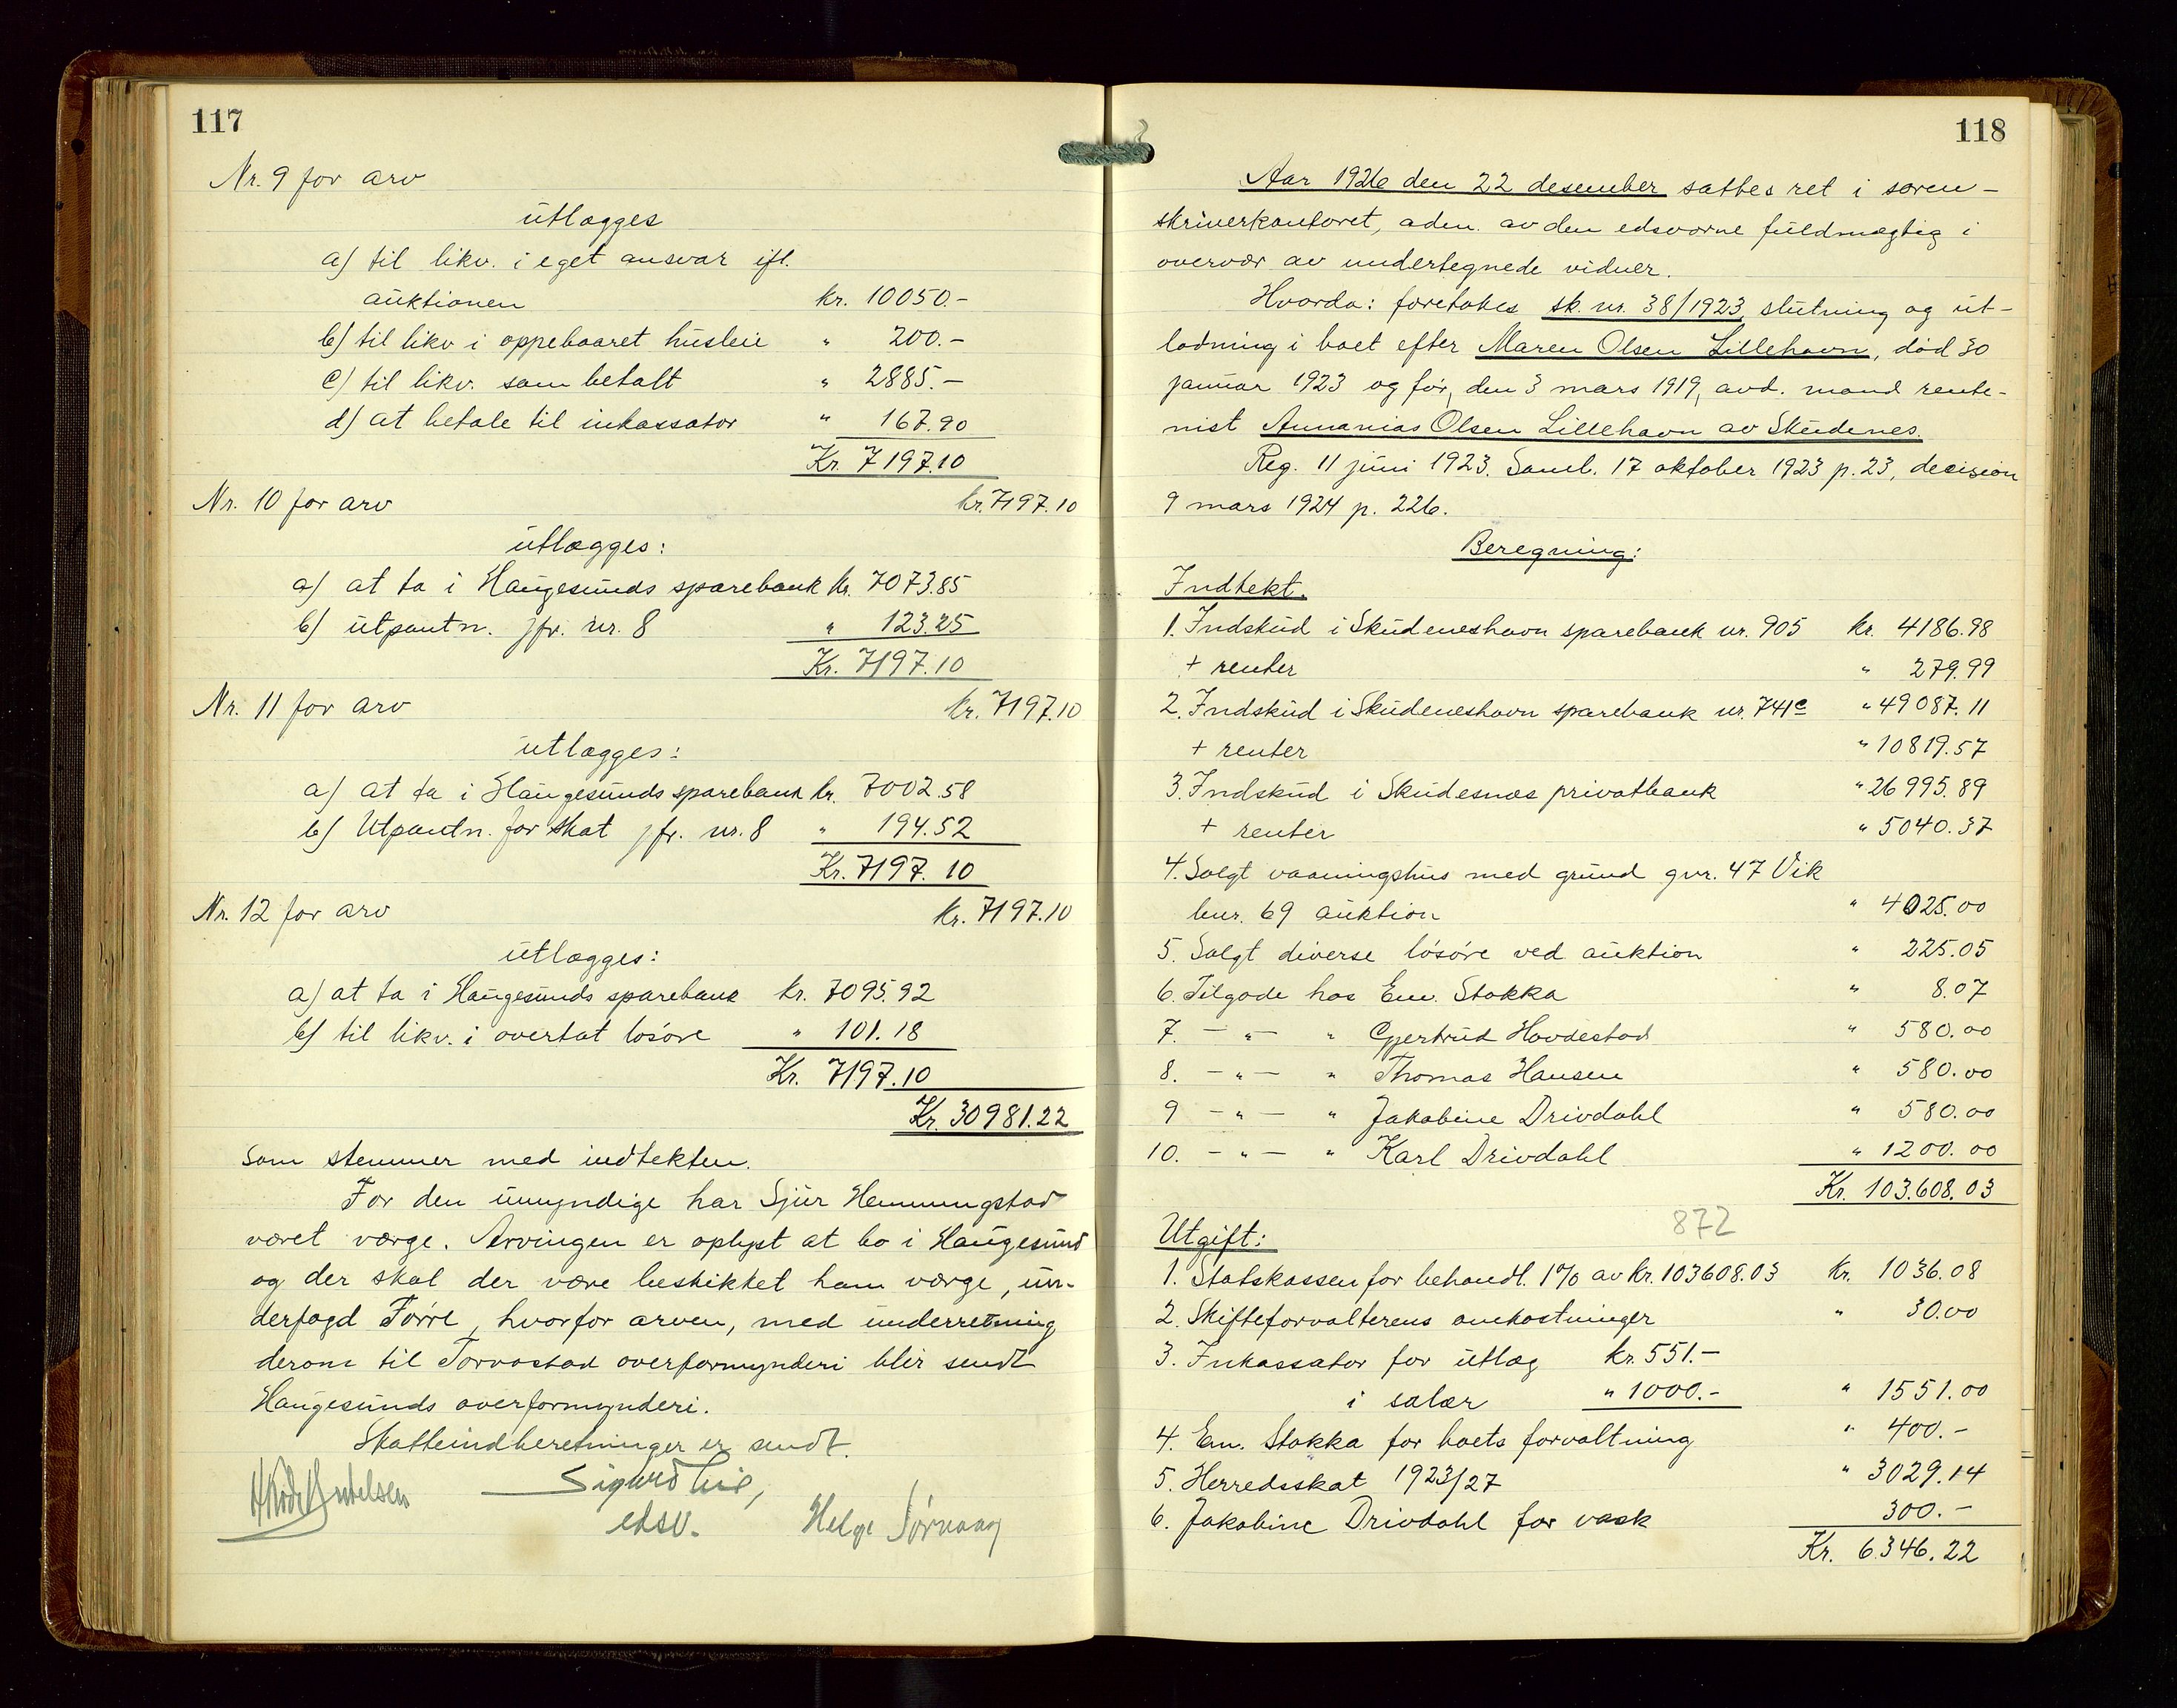 117
Nr. 9 for arv
utlægges
a) til likv. i eget ansvar ifl.
auktionen kr. 10050.-
b) til likv i oppebaaret husleie " 200.-
c) til likv. som betalt " 2885.-
d) at betale til inkassator " 167.90
Kr. 7197.10
Nr. 10 for arv kr. 7197.10
utlægges:
a) at ta i Haugesunds sparebank kr. 7073.85
b) utpantn. jfr. nr. 8 " 123.25
Kr. 7197.10
Nr. 11 for arv kr. 7197.10
utlægges:
a) at ta i Haugesunds sparebank kr. 7002.58
b) Utpantn. for skat jfr. nr. 8 " 194.52
Kr. 7197.10
Nr. 12 for arv kr. 7197.10
utlægges:
a) at ta i Haugesunds sparebank kr. 7095.92
b) til likv. i overtat løsøre " 101.18
Kr. 7197.10
Kr. 30981.22
som stemmer med indtekten.
For den umyndige har Sjur Hemmingstad
været værge. Arvingen er oplyst at bo i Haugesund
og der skal der være beskikket ham værge, un-
derfogd Førre, hvorfor arven, med underretning
derom til Torvastad overformynderi blir sendt
Haugesunds overformynderi.
Skatteindberetninger er sendt.
Sigurd
edsv. Helge
118
Aar 1926 den 22 desember sattes ret i soren-
skriverkontoret, adm. av den edsvorne fuldmægtig i
overvær av undertegnede vidner.
Hvorda: foretokes sk. nr. 38/1923, slutning og ut-
lodning i boet efter Maren Olsen Lillehavn, død 30
januar 1923 og før, den 3 mars 1919, avd. mand rente-
nist Annanias Olsen Lillehavn av Skudenes.
Reg. 11 juni 1923. Saml. 17 oktober 1923 p. 23, decision
9 mars 1924 p. 226.
Beregning:
Indtekt.
1. Indskud i Skudeneshavn sparebank nr. 905 kr. 4186.98
+ renter " 279.99
2. Indskud i Skudeneshavn sparebank nr. 741c " 49087.11
+ renter " 10819.57
3. Indskud i Skudesnæs privatbank " 26995.89
+ renter " 5040.37
4. Solgt vaaningshus med grund gnr. 47 Vik
bnr. 69 auktion " 4025.00
5. Solgt diverse løsøre ved auktion " 225.05
6. Tilgode hos Em. Stokka " 8.07
7. - " - " Gjertrud Hovdestad " 580.00
8. - " - " Thomas Hansen " 580.00
9 - " - " Jakobine Drivdahl " 580.00
10. - " - " Karl Drivdahl " 1200.00
Kr. 103.608.03
872
Utgift:
1. Statskassen for behandl. 1% av kr. 103608.03 kr. 1036.08
2. Skifteforvalterens omkostninger " 30.00
3. Inkassator for utlæg kr. 551.-
i salær " 1000.- " 1551.00
4. Em. Stokka for boets forvaltning " 400.-
5. Herredsskat 1923/27 " 3029.14
6. Jakobine Drivdahl for vask 300.-
Kr. 6346.22